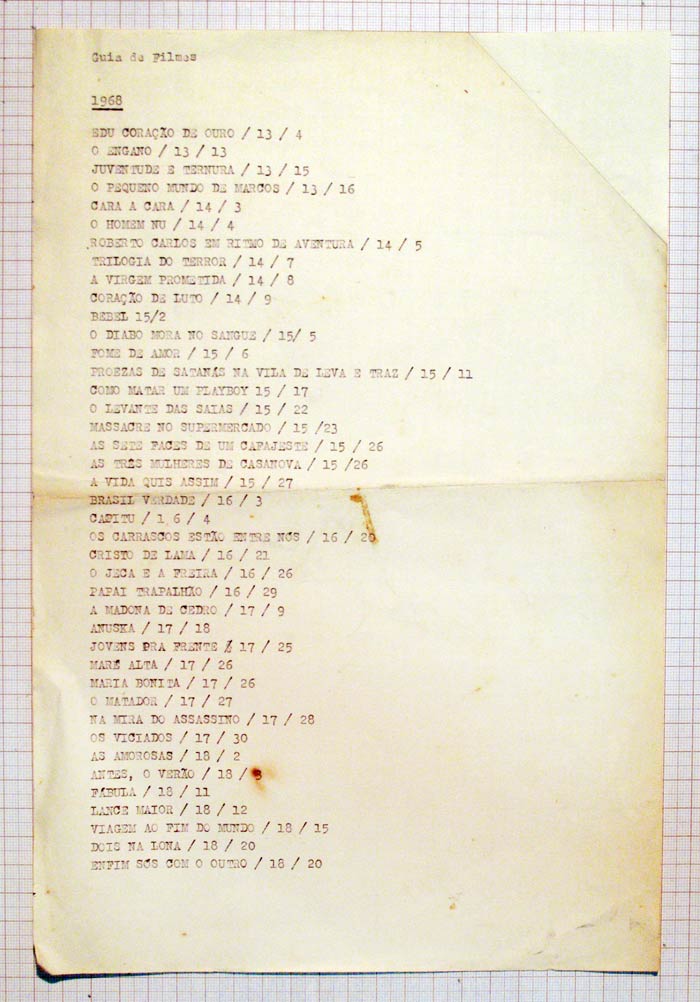 Guia de Filmes
1968
EDU CORAÇÃO DE OURO / 13 / 4
O ENGANO / 13 / 13
JUVENTUDE E TERNURA / 13 / 15
O PEQUENO MUNDO DE MARCOS / 13 / 16
CARA A CARA / 14 / 3
O HOMEM NU / 14 / 4
ROBERTO CARLOS EM RITMO DE AVENTURA / 14 / 5
TRILOGIA DO TERROR / 14 / 7
A VIRGEM PROMETIDA / 14 / 8
CORAÇÃO DE LUTO / 14 / 9
BEBEL 15/2
O DIABO MORA NO SANGUE / 15/ 5
FOME DE AMOR / 15 / 6
PROEZAS DE SATANÁS NA VILA DE LEVA E TRAZ / 15 / 11
COMO MATAR UM PLAYBOY 15 / 17
O LEVANTE DAS SAIAS / 15 / 22
MASSACRE NO SUPERMERCADO / 15 /23
AS SETE FACES DE UM CAFAJESTE / 15 / 26
AS TRÊS MULHERES DE CASANOVA / 15 /26
A VIDA QUIS ASSIM / 15 / 27
BRASIL VERDADE / 16 / 3
CAPITU / 1 6 / 4
OS CARRASCOS ESTÃO ENTRE NÓS / 16 / 20
CRISTO DE LAMA / 16 / 21
O JECA E A FREIRA / 16 / 26
PAPAI TRAPALHÃO / 16 / 29
A MADONA DE CEDRO / 17 / 9
ANUSKA / 17 / 18
JOVENS PRA FRENTE / 17 / 25
MARÉ ALTA / 17 / 26
MARIA BONITA / 17 / 26
O MATADOR / 17 / 27
NA MIRA DO ASSASSINO / 17 / 28
OS VICIADOS / 17 / 30
AS AMOROSAS / 18 / 2
ANTES, O VERÃO / 18 /
FÁBULA / 18 / 11
LANCE MAIOR / 18 / 12
VIAGEM AO FIM DO MUNDO / 18 / 15
DOIS NA LONA / 18 / 20
ENFIM SÓS COM O OUTRO / 18 / 20